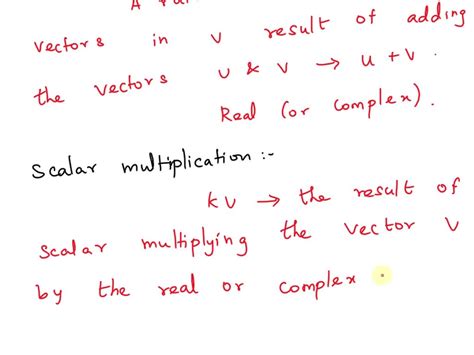 A
vectors in V result of adding
the vectors U & V → u + v.
Real (or complex).
Scalar multiplication :-
kU → the result of
scalar multiplying the vector V
by the real or complex